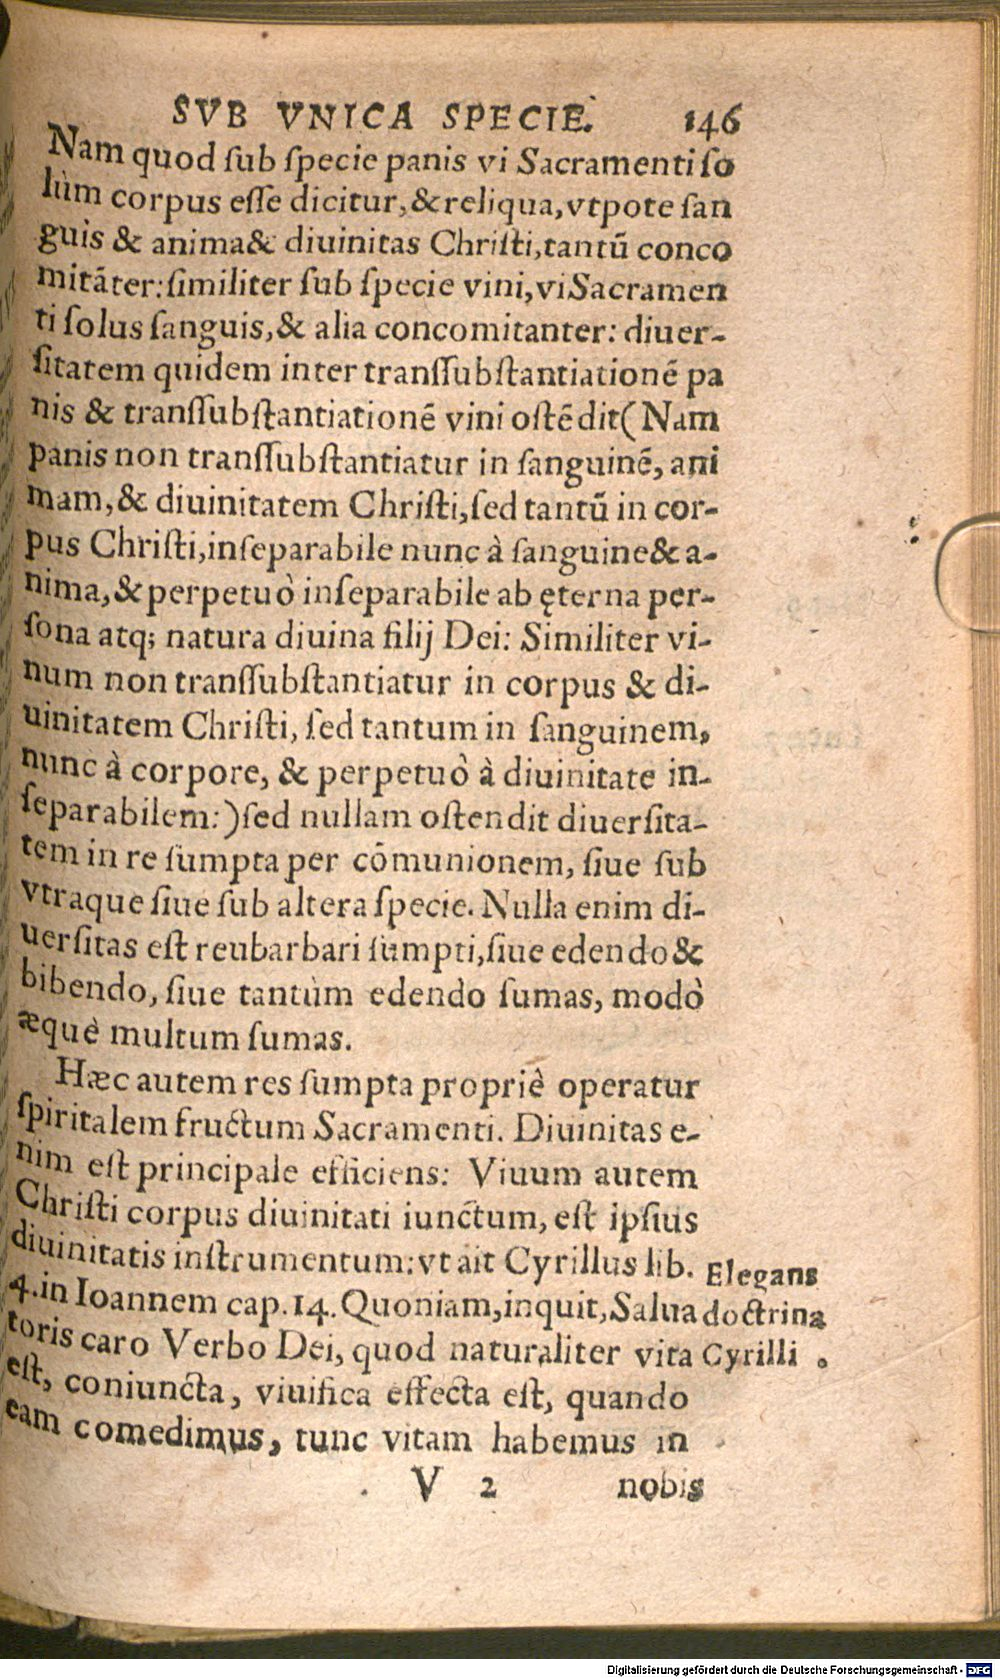 SVB VNICA SPECIE. 146
Nam quod ſub ſpecie panis vi Sacramenti ſo
lùm corpus eſſe dicitur, & reliqua, vtpote ſan
guis & anima & diuinitas Chriſti, tantũ conco
mitãter: ſimiliter ſub ſpecie vini, vi Sacramen
ti ſolus ſanguis, & alia concomitanter: diuer-
ſitatem quidem inter transſubſtantiationẽ pa
nis & transſubſtantiationẽ vini oſtẽdit (Nam
panis non transſubſtantiatur in ſanguinẽ, ani
mam, & diuinitatem Chriſti, ſed tantũ in cor-
pus Chriſti, inſeparabile nunc à ſanguine & a-
nima, & perpetuò inſeparabile ab ęterna per-
ſona atq; natura diuina filij Dei: Similiter vi-
num non transſubſtantiatur in corpus & di-
uinitatem Chriſti, ſed tantum in ſanguinem,
nunc à corpore, & perpetuò à diuinitate in-
ſeparabilem:) ſed nullam oſtendit diuerſita-
tem in re ſumpta per cõmunionem, ſiue ſub
vtraque ſiue ſub altera ſpecie. Nulla enim di-
uerſitas eſt reubarbari ſumpti, ſiue edendo &
bibendo, ſiue tantùm edendo ſumas, modò
æquè multum ſumas.
Hæc autem res ſumpta propriè operatur
ſpiritalem fructum Sacramenti. Diuinitas e-
nim eſt principale efficiens: Viuum autem
Chriſti corpus diuinitati iunctum, eſt ipſius
diuinitatis inſtrumentum: vt ait Cyrillus lib.
4. in Ioannem cap. 14. Quoniam, inquit, Salua
toris caro Verbo Dei, quod naturaliter vita
eſt, coniuncta, viuifica effecta eſt, quando
eam comedimus, tunc vitam habemus in
Elegans
doctrina
Cyrilli.
V 2 nobis
Digitalisierung gefördert durch die Deutsche Forschungsgemeinschaft - DFG